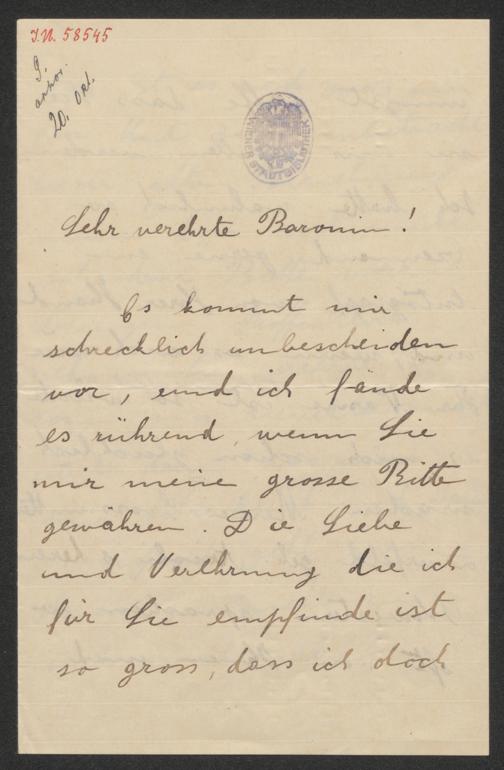 I.N. 58545
20. Okt.
WIENER STADTBIBLIOTHEK
Sehr verehrte Baronin!
Es kommt mir
schrecklich unbescheiden
vor, und ich fände
es rührend, wenn Sie
mir meine grosse Bitte
gewähren. Die Liebe
und Verehrung die ich
für Sie empfinde ist
so gross, dass ich doch